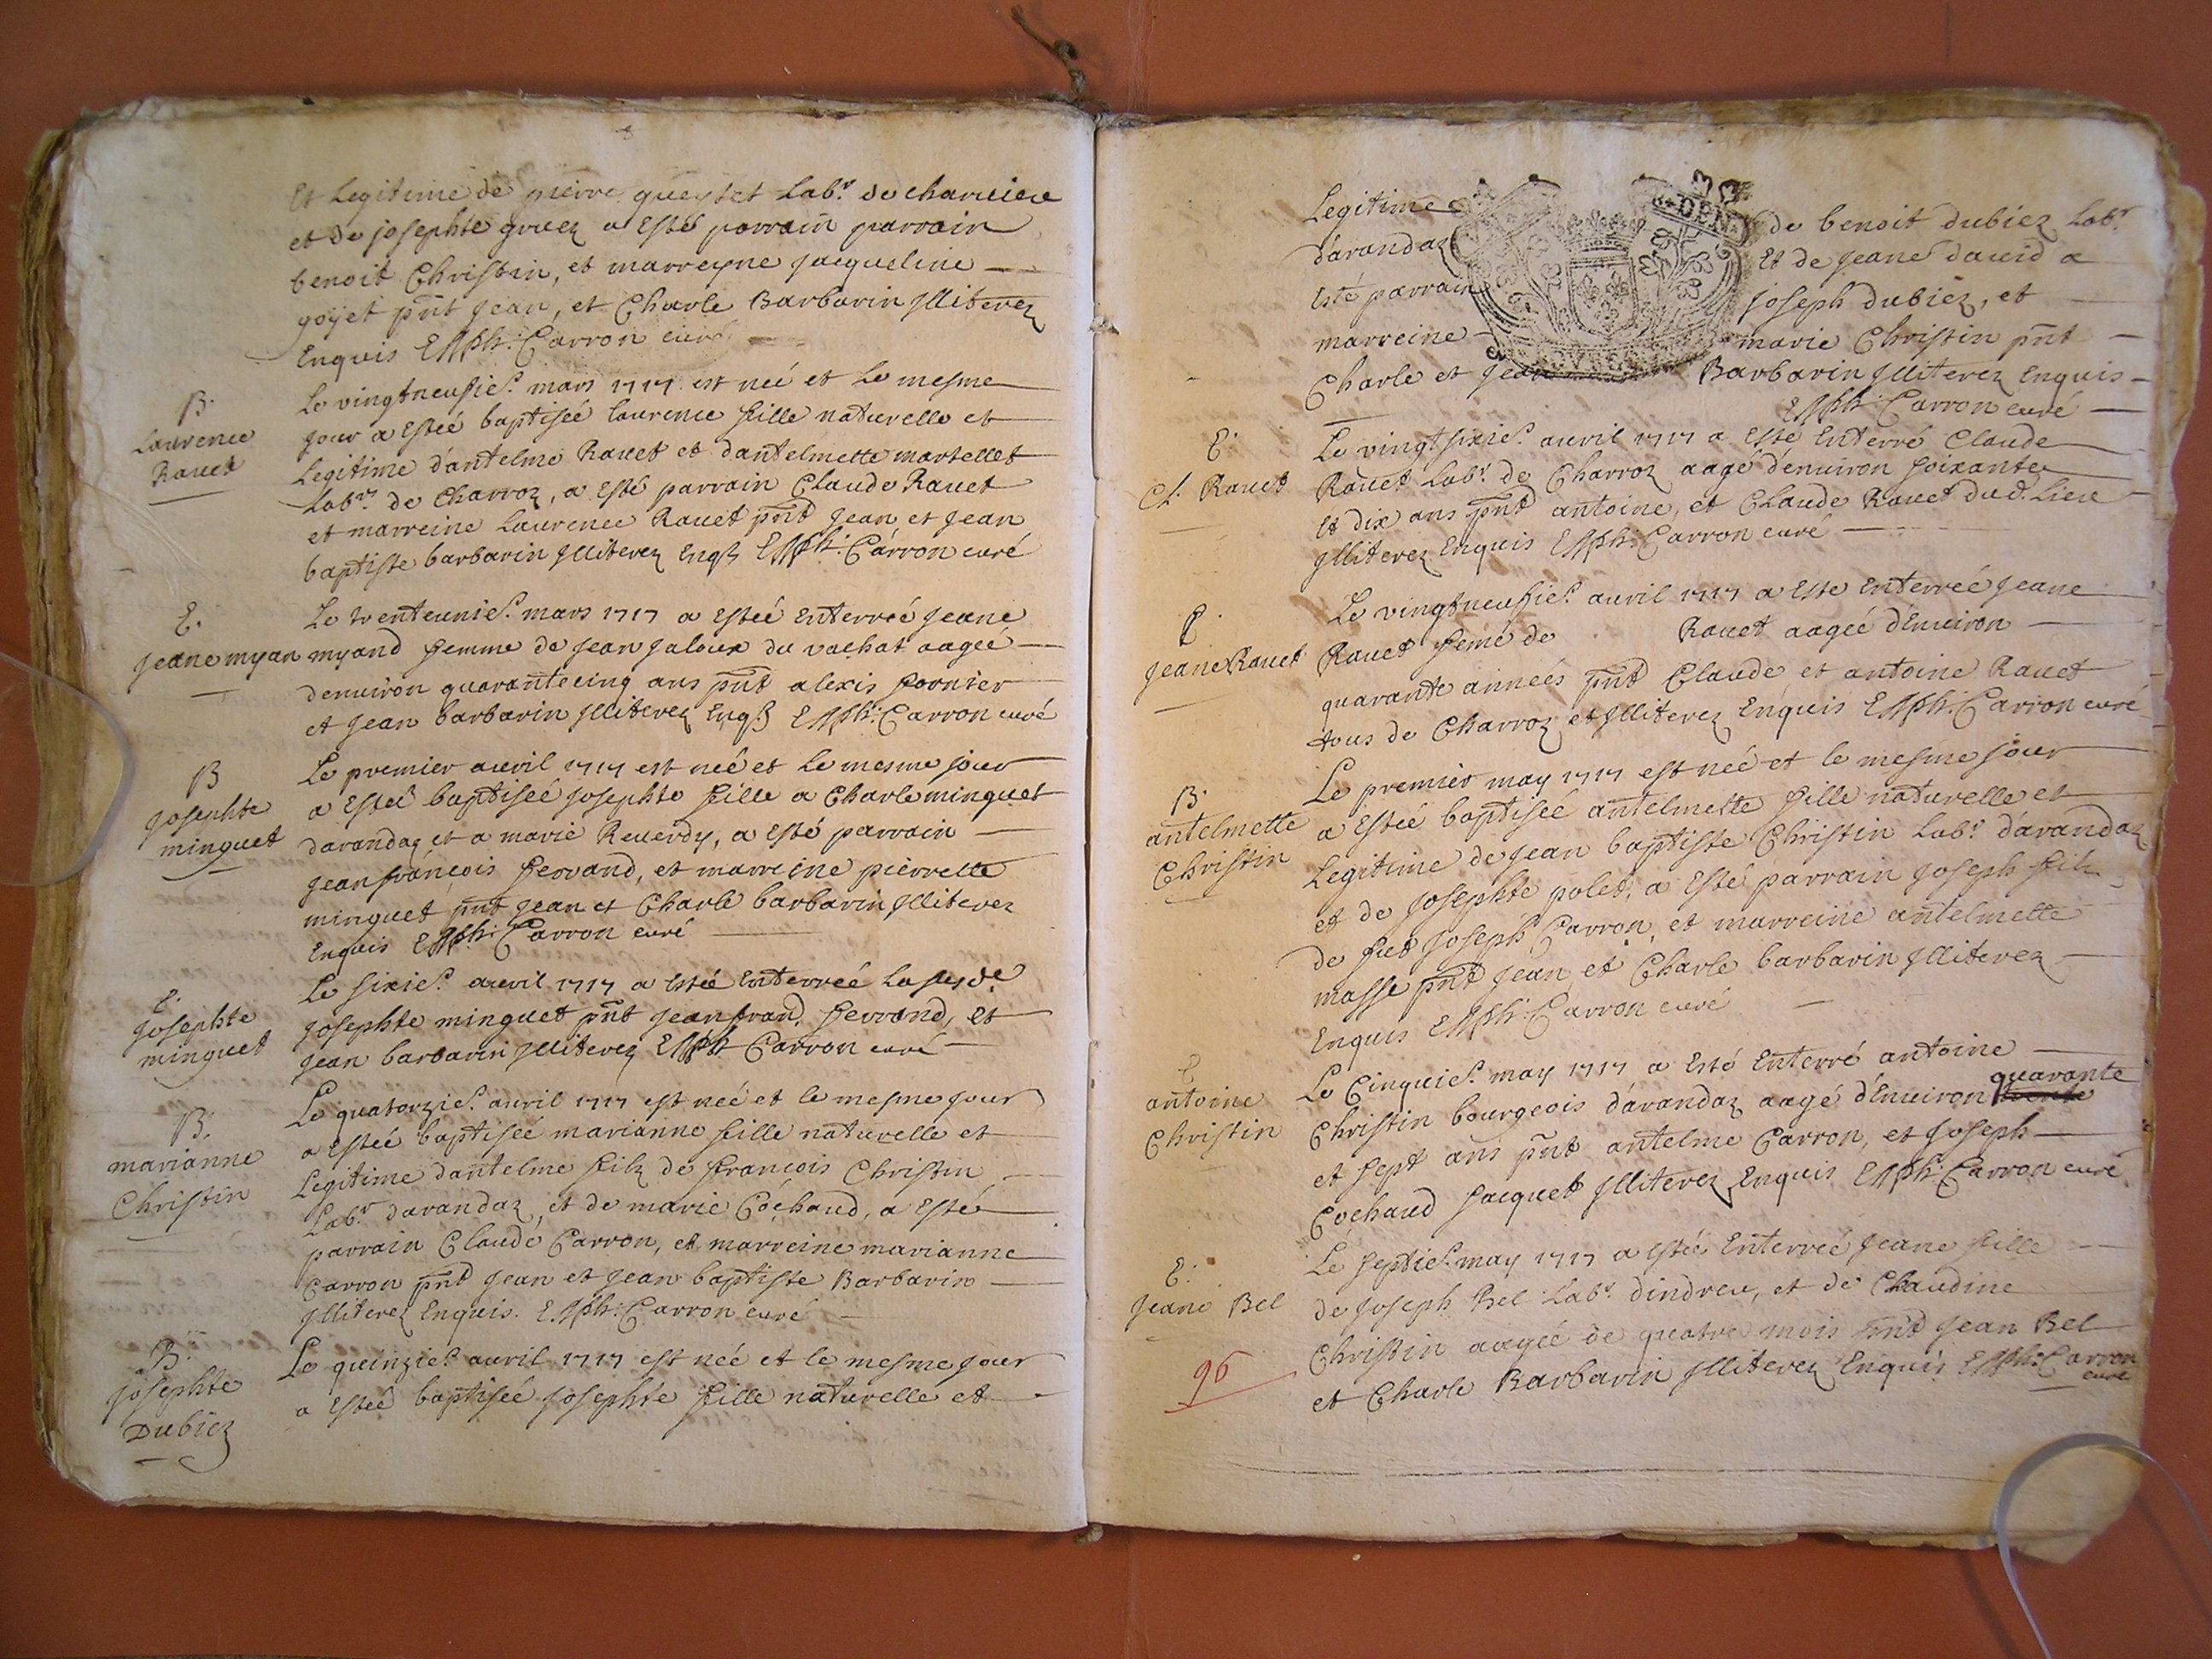 Et Legitime de pierre queytet Lab.r de charriere
et de josephte gruez a esté parrain parrain
benoit Christin, et marreyne jacqueline
goyet pnt jean, et Charle Barbarin jlliterez
Enquis EJph: Carron curé
B.
Laurence
Rauet
Le vingtneufie.e mars 1717 est neé et Le mesme
jour a estéé baptiseé laurence fille naturelle et
Legitime d'antelme Rauet et dantelmette martellet
Lab.rs de Charroz, a esté parrain Claude Rauet
et marreine Laurence Rauet pnt jean et jean
baptiste barbarin jlliterez Enqs EJph: Carron curé
E.
jeane myan
Le trenteunie.e mars 1717 a esteé Enterreé jeane
myand femme de jean jaloux du vachat aageé
denuiron quarantecinq ans pnt alexis fornier
et jean barbarin jlliterez Enqs EJph: Carron curé
B
josephte
minguet
Le premier auril 1717 est neé et Le mesme jour
a esteé baptiseé josephte fille a Charle minguet
darandaz et a marie Reuerdy, a esté parrain
jeanfrançois ferrand, et marreine pierrette
minguet pnt jean et Charle barbarin jlliterez
Enquis EJph: Carron curé
E.
josephte
minguet
Le sixie.e auril 1717 a esteé Enterreé La susd.e
josephte minguet pnt jeanfran. ferrand, et
jean barbarin jlliterez EJph Carron curé
B.
marianne
Christin
Le quatorzie.e auril 1717 est neé et le mesme jour
a esteé baptiseé marianne fille naturelle et
Legitime dantelme filz de françois Christin
Lab.r darandaz, et de marie Cochaud, a esté
parrain Claude Carron, et marreine marianne
Carron pnt jean et jean baptiste Barbarin
jlliterez Enquis. E.Jph: Carron curé
B.
josephte
Dubiez
Le quinzie.e auril 1717 est neé et le mesme jour
a esteé baptiseé josephte fille naturelle et
Legitime de benoit dubiez Lab.r
d'arandaz et de jeane dauid a
esté parrain joseph dubiez, et
marreine marie Christin pnt
Charle et jean Barbarin jlliterez Enquis
EJph: Carron curé
E.
Cl. Rauet
Le vingtsixie.e auril 1717 a esté Enterré Claude
Rauet Lab.r de Charroz aagé d'enuiron soixante
et dix ans pnt antoine, et Claude Rauet dud. Lieu
jlliterez Enquis EJph: Carron curé
E.
jeane Rauet
Le vingtneufie.e auril 1717 a este Enterreé jeane
Rauet feme de Rauet aageé d'Enuiron
quarante anneés pnt Claude et antoine Rauet
tous de Charroz et jlliterez Enquis EJph: Carron curé
B.
antelmette
Christin
Le premier may 1717 est neé et le mesme jour
a esteé baptiseé antelmette fille naturelle et
Legitime de jean baptiste Christin Lab.r d'arandaz
et de josephte polet, a esté parrain joseph filz
de fut joseph Carron, et marreine antelmette
masse pnt jean et Charle barbarin jlliterez
Enquis EJph: Carron curé
E
antoine
Christin
Le Cinquie.e may 1717 a esté Enterré antoine
quarante
Christin bourgeois d'arandaz aagé d'Enuiron trente
et sept ans pnt antelme Carron, et joseph
Cochaud jacquet jlliterez Enquis EJph: Carron curé
E.
jeane Bel
Le septie.e may 1717 a esteé Enterreé jeane fille
de joseph Bel Lab.r dindreu, et de Claudine
Christin aageé de quatre mois pnt jean Bel
et Charle Barbarin jlliterez Enquis EJph: Carron
curé
96